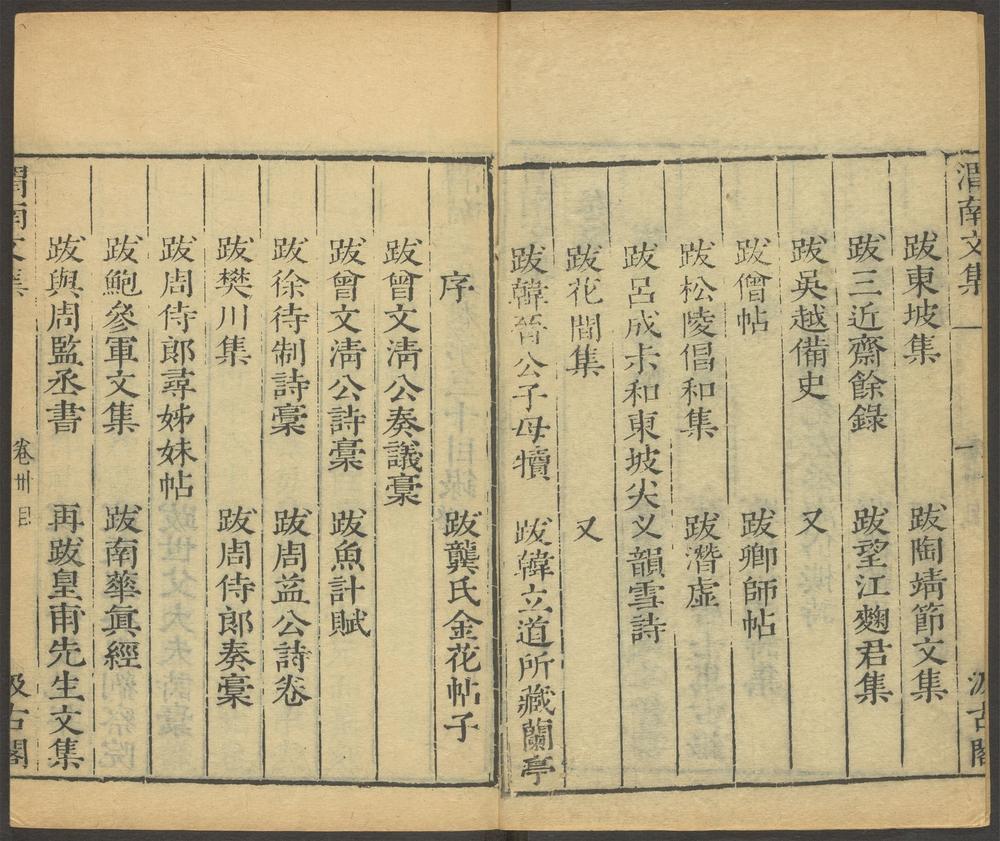 渭南文集
汲古閣
跋東坡集 跋陶靖節文集
跋三近齋餘錄 跋望江麴君集
跋吳越備史 又
跋僧帖 跋卿師帖
跋松陵倡和集 跋潛虛
跋呂成尗和東坡尖义韻雪詩
跋花間集 又
跋韓晉公子母犢 跋韓立道所藏蘭亭
序 跋龔氏金花帖子
跋曾文淸公奏議稾
跋曾文淸公詩稾 跋魚計賦
跋徐待制詩稾 跋周益公詩卷
跋樊川集 跋周侍郎奏稾
跋周侍郎尋姊妹帖
跋鮑參軍文集 跋南華眞經
跋與周監丞書 再跋皇甫先生文集
渭南文集 卷卅目 汲古閣